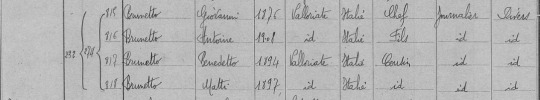 815 Brunetto Giovanni 1876 Valloriate Italie Chef Journalier Divers
816 Brunetto Antoine 1908 id Italie Fils id id
232 274 817 Brunetto Benedetto 1894 Valloriate Italie Cousin id id
818 Brunetto Matteo 1897 id Italie id id id